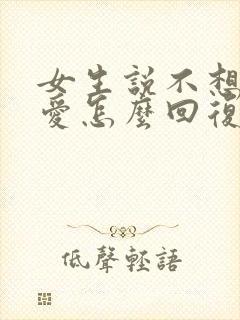 女生説不想
愛怎麼回復
低聲輕語